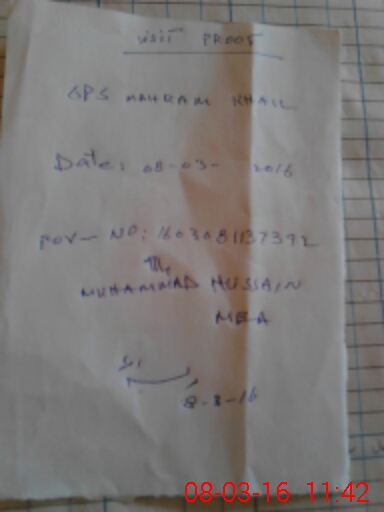 Visit PROOF
GPS MAHRAM KHAIL
Date: 08-03- 2016
POV- NO: 1603081137392
MUHAMMAD HUSSAIN
MEA
8-3-16
08-03-16 11:42